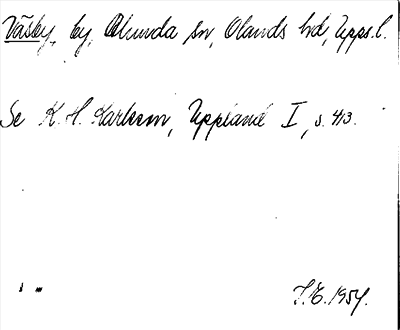 Väsby, by, Alunda sn, Olands hd, Upps. l.
Se K. H. Karlsson, Uppland I, s. 413.
1954.